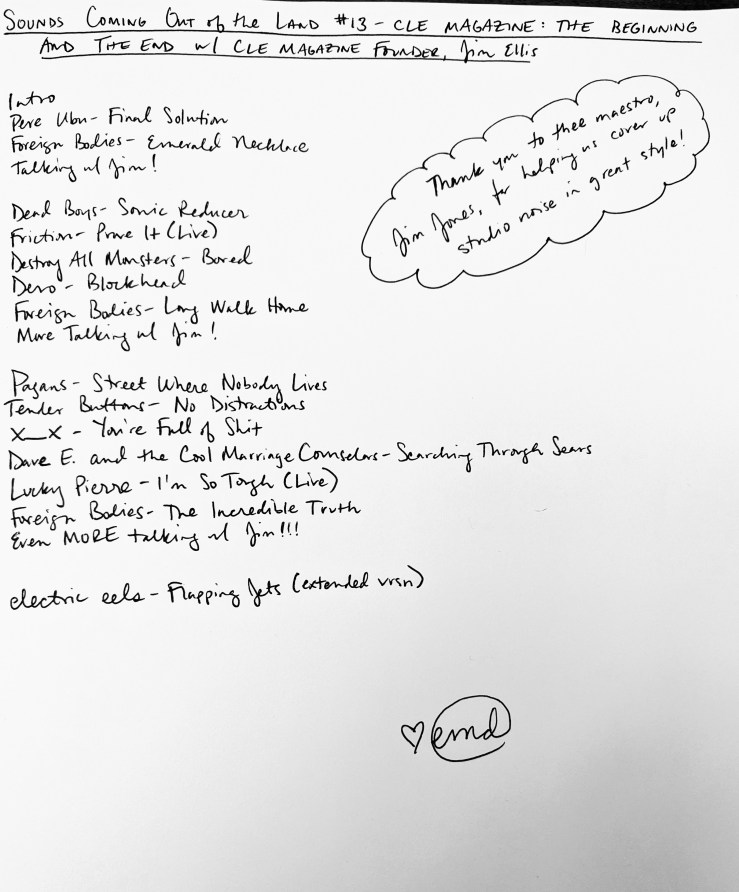 SOUNDS COMING OUT OF THE LAND #13 - CLE MAGAZINE: THE BEGINNING
AND THE END w/ CLE MAGAZINE FOUNDER, Jim Ellis
Intro
Pere Ubu - Final Solution
Foreign Bodies - Emerald Necklace
Talking w/ Jim!
Thank you to thee maestro,
Jim Jones, for helping us cover up
studio noise in great style!
Dead Boys - Sonic Reducer
Friction - Prove It (Live)
Destroy All Monsters - Bored
Devo - Blockhead
Foreign Bodies - Long Walk Home
More Talking w/ Jim!
Pagans - Street Where Nobody Lives
Tender Buttons - No Distractions
X__X - You're Full of Shit
Dave E. and the Cool Marriage Counselors - Searching Through Sears
Lucky Pierre - I'm So Tough (Live)
Foreign Bodies - The Incredible Truth
Even MORE talking w/ Jim!!!
electric eels - Flapping Jets (extended vrsn)
♡ emd